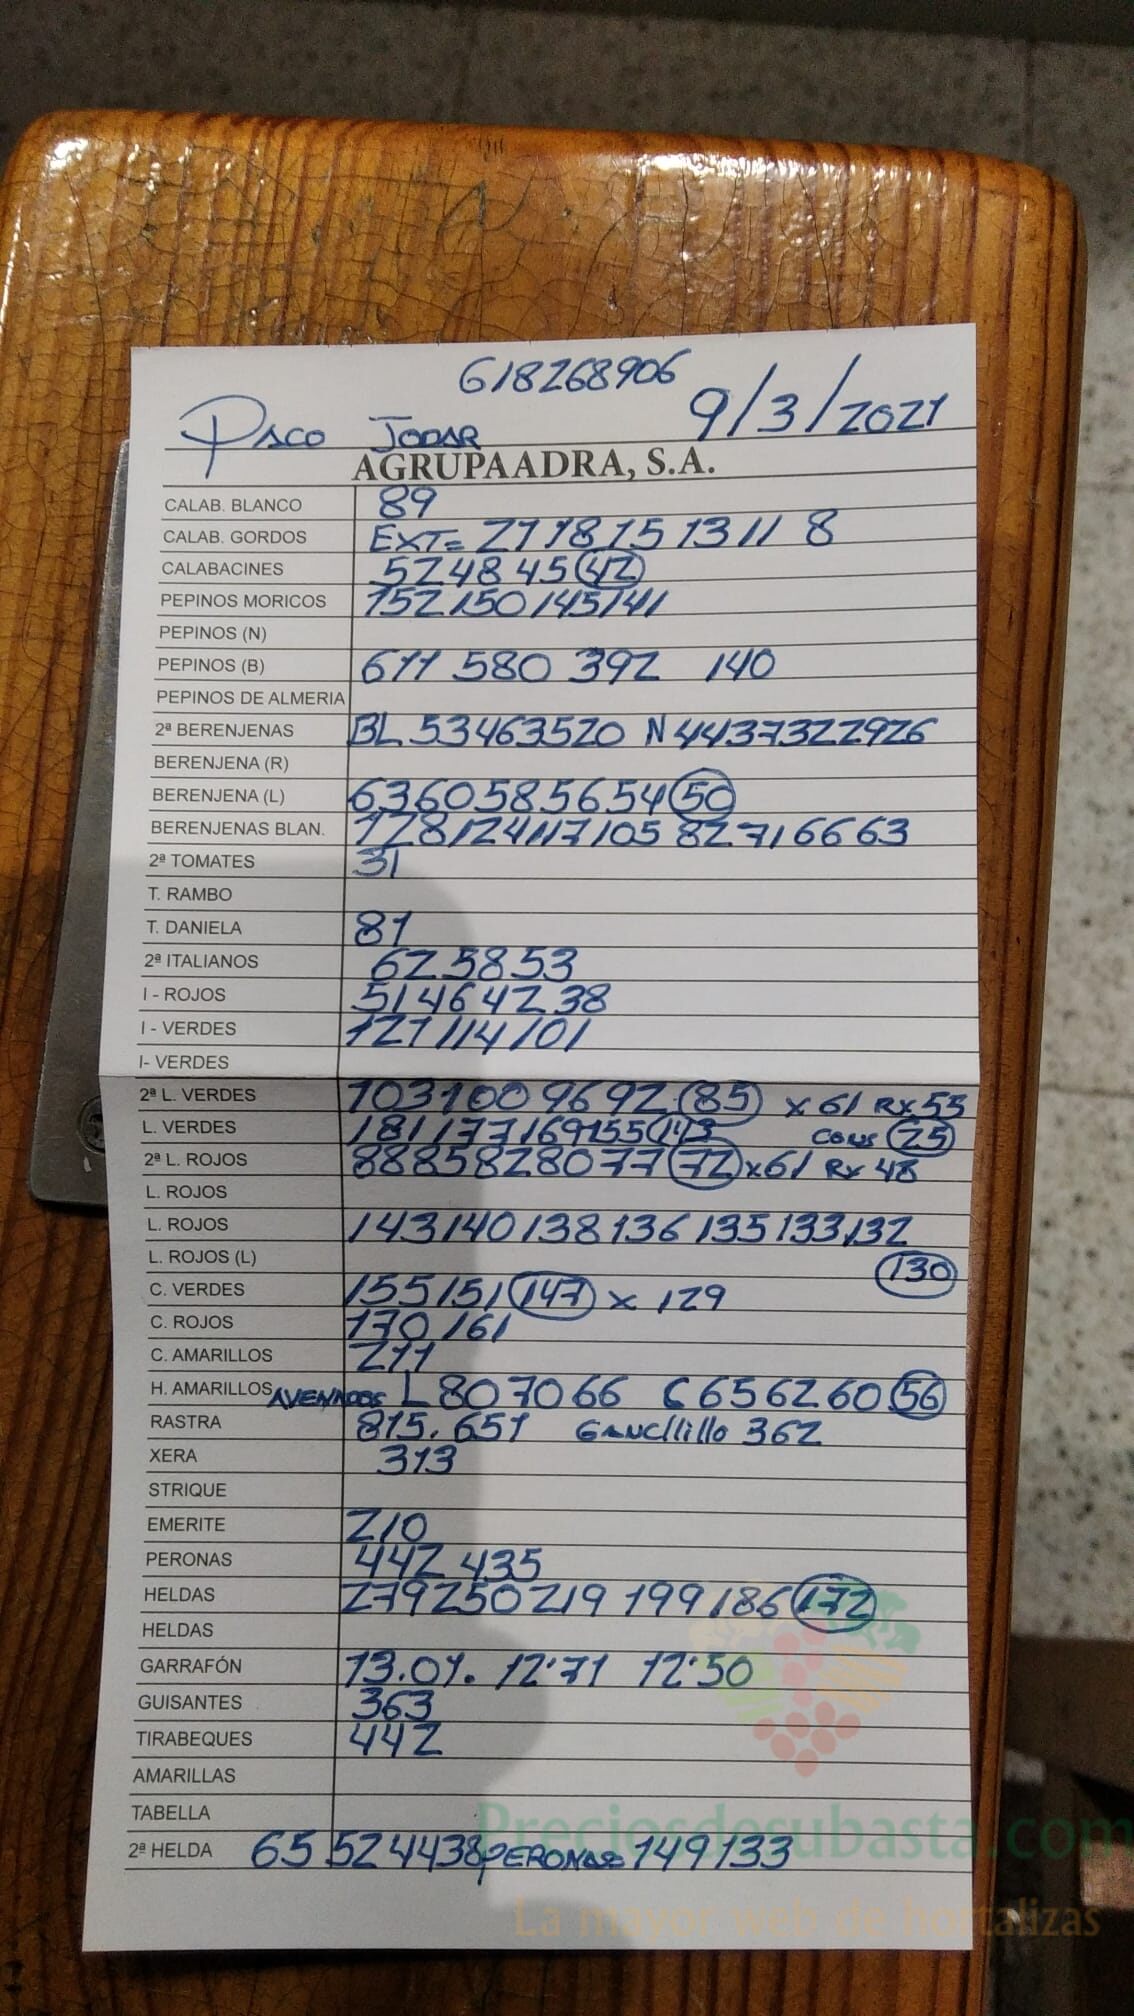 618268906
Paco Jodar 9/3/2021
AGRUPAADRA, S.A.
CALAB. BLANCO 89
CALAB. GORDOS EXT= 21 18 15 13 11 8
CALABACINES 52 48 45 42
PEPINOS MORICOS 152 150 145 141
PEPINOS (N)
PEPINOS (B) 611 580 392 140
PEPINOS DE ALMERIA
2ª BERENJENAS BL 53 46 35 20 N 44 37 32 29 26
BERENJENA (R)
BERENJENA (L) 63 60 58 56 54 50
BERENJENAS BLAN. 128 124 117 105 82 71 66 63
2ª TOMATES 31
T. RAMBO
T. DANIELA 81
2ª ITALIANOS 62 58 53
I - ROJOS 51 46 42 38
I - VERDES 121 114 101
I- VERDES
2ª L. VERDES 103 100 96 92 85 x 61 Rx 55
L. VERDES 181 177 169 155 143 CONS 25
2ª L. ROJOS 88 85 82 80 77 72 x 61 Rx 48
L. ROJOS
L. ROJOS 143 140 138 136 135 133 132
L. ROJOS (L) 130
C. VERDES 155 151 147 x 129
C. ROJOS 170 161
C. AMARILLOS 211
H. AMARILLOS L 80 70 66 C 65 62 60 56
RASTRA 815. 651 GANCHILLO 362
XERA 313
STRIQUE
EMERITE 210
PERONAS 442 435
HELDAS 279 250 219 199 186 172
HELDAS
GARRAFÓN 13.01. 12'71 12'50
GUISANTES 363
TIRABEQUES 442
AMARILLAS
TABELLA
2ª HELDA 65 52 44 38 PERONAS 149 133
Preciosdesubasta.com
La mayor web de hortalizas